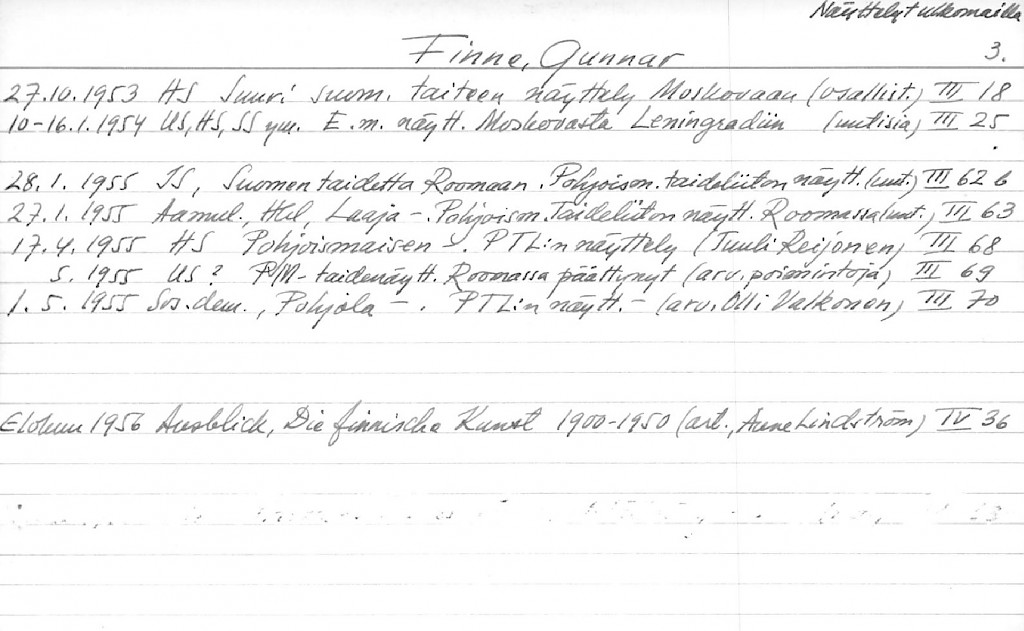 Näyttelyt ulkomailla
Finne, Gunnar 3.
27.10.1953 HS Suuri suom. taiteen näyttely Moskovaan (osallist.) III 18
10-16.1.1954 US, HS, SS ym. E.m. näytt. Moskovasta Leningradiin (uutisia) III 25
28.1.1955 IS, Suomen taidetta Roomaan. Pohjoism. taideliiton näytt. (uut.) III 62 b
27.1.1955 Aamul. Hbl, Laaja -. Pohjoism. Taideliiton näytt. Roomassa (uut.) III 63
17.4.1955 HS Pohjoismaisen -. PTL:n näyttely (Tuuli Reijonen) III 68
5.1955 US? P/M- taidenäytt. Roomassa päättynyt (arv. poimintoja) III 69
1.5.1955 Sos.dem., Pohjola -. PTL:n näytt. - (arv. Olli Valkonen) III 70
Elokuu 1956 Ausblick, Die finnische Kunst 1900-1950 (art., Aune Lindström) IV 36